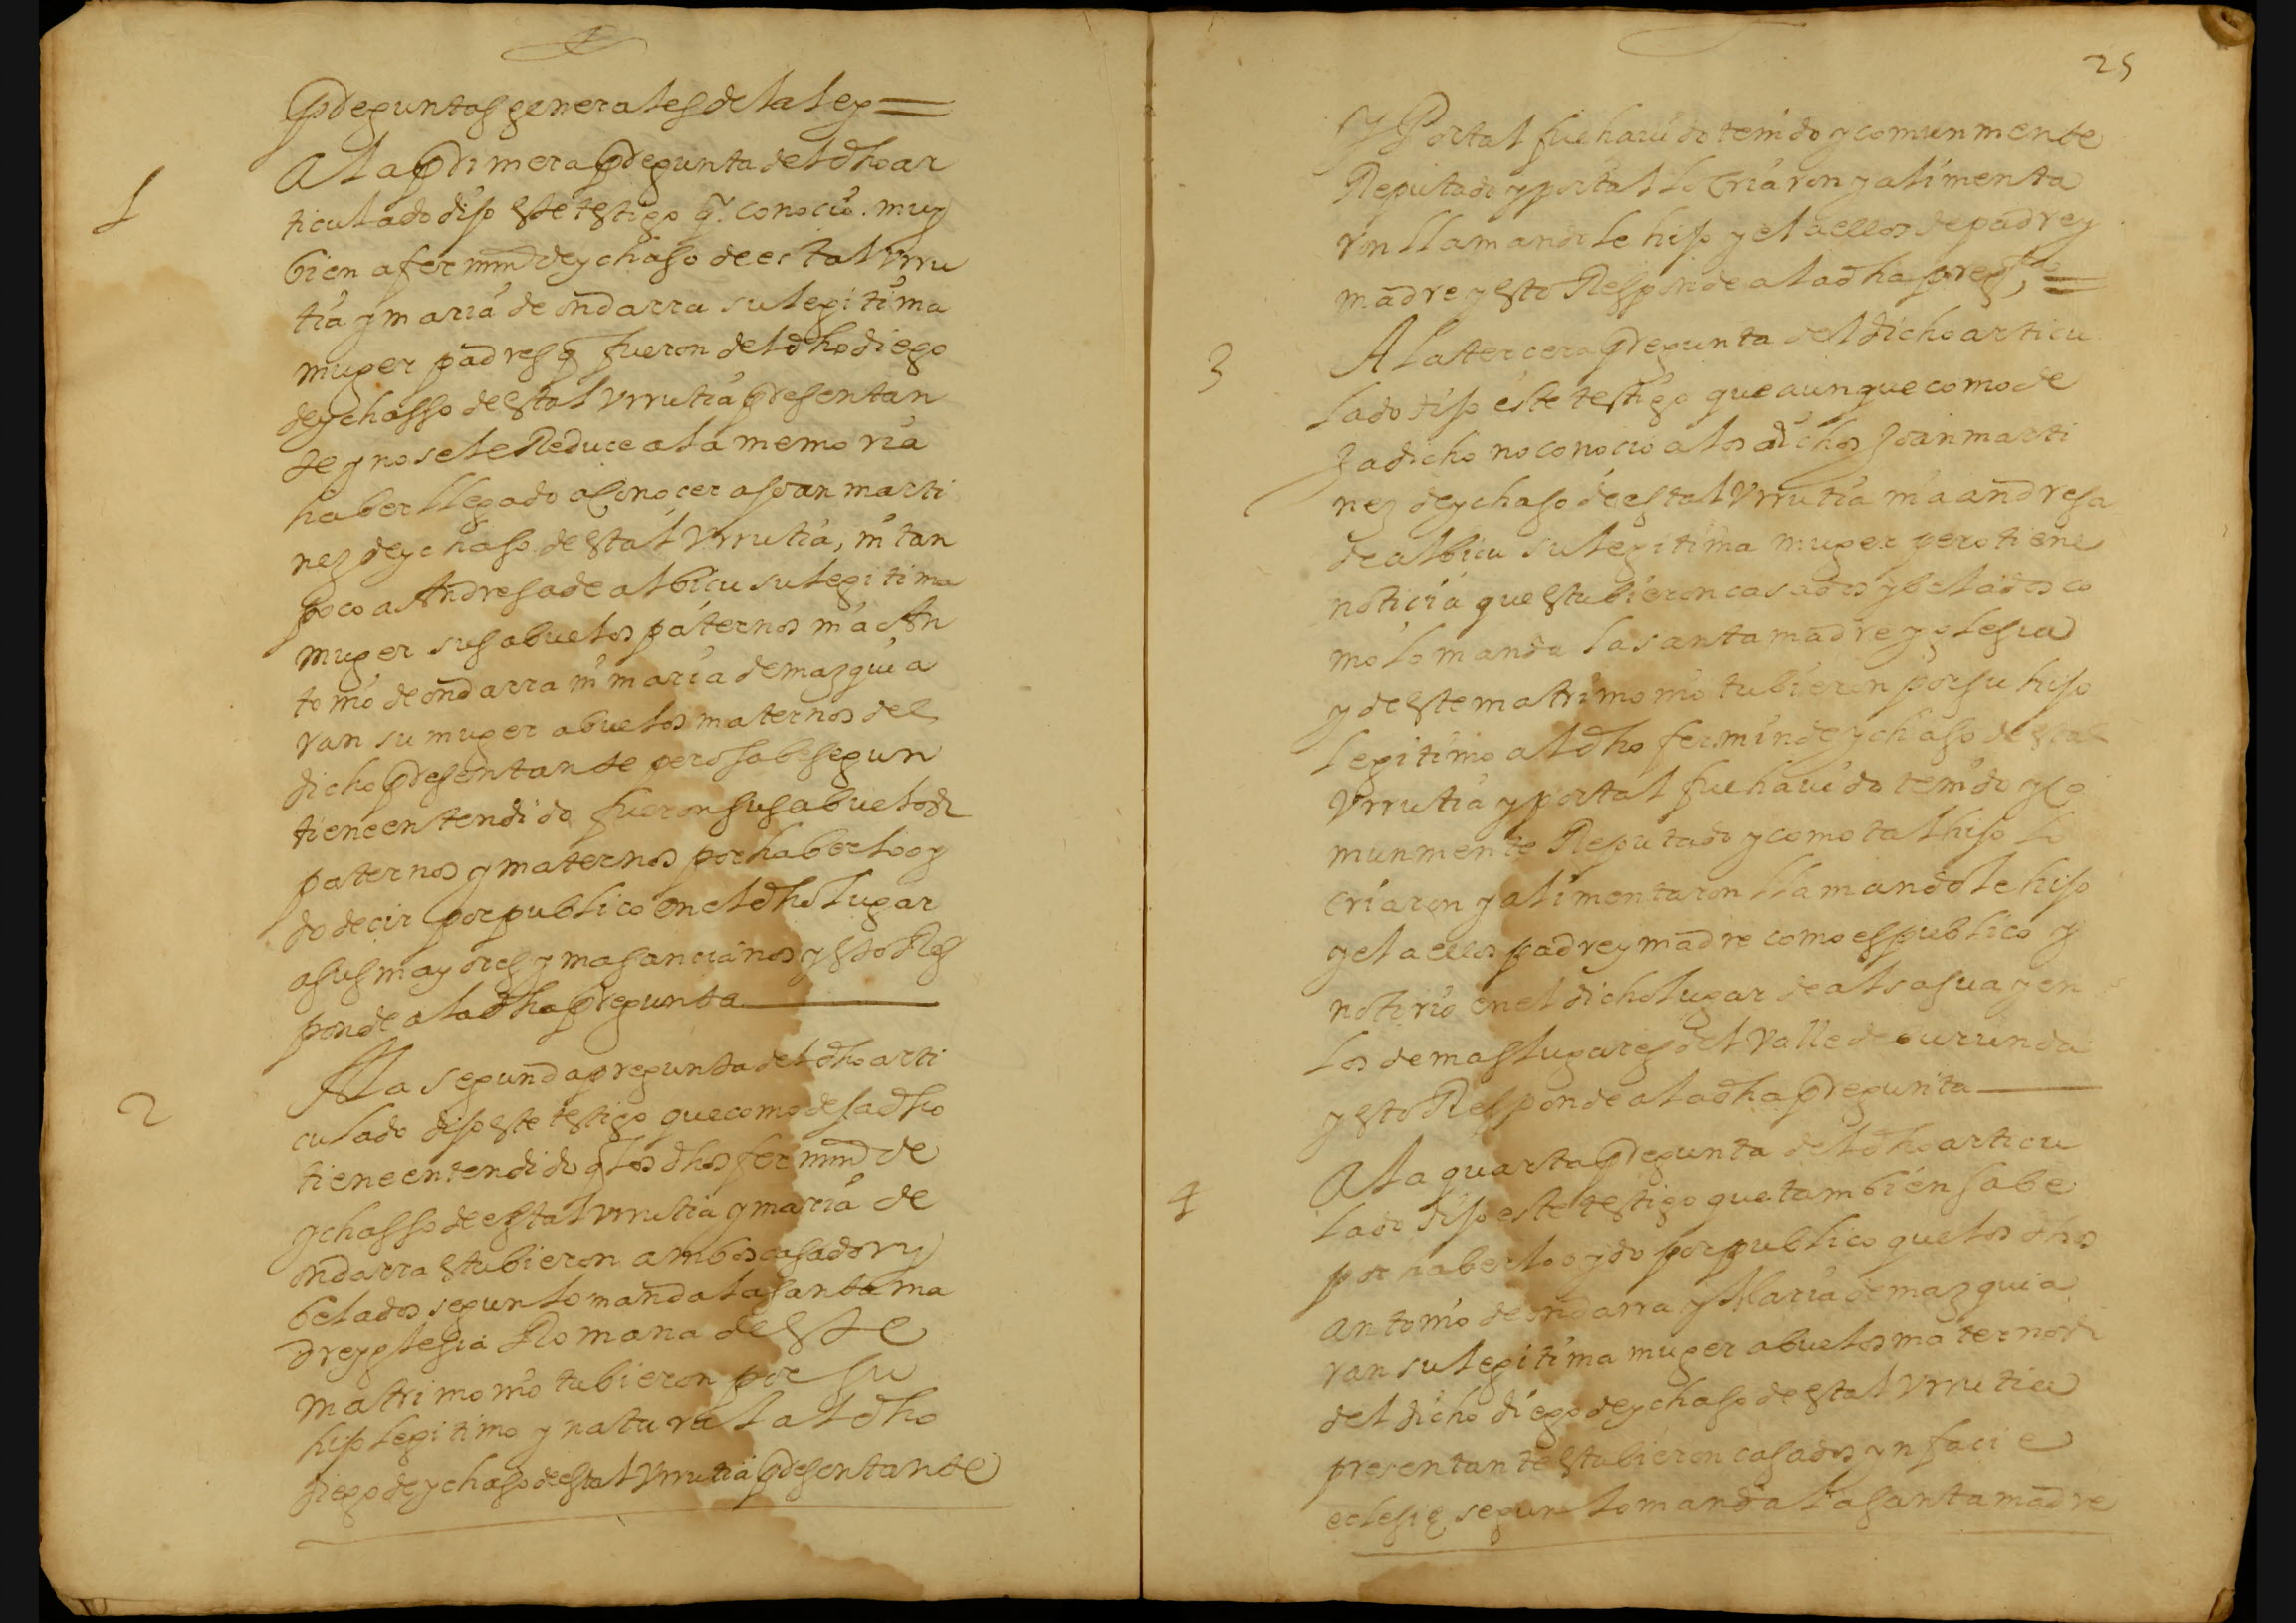 Preguntas generales de la ley =
1
A la primera pregunta del dho ar
ticulado dijo este testigo q. conocio muy
bien a fermin de ychaso de estal Vrru
tia y maria de ondarra su legitima
muger padres q fueron del dho diego
de ychasso de estal Vrrutia presentan
te y no se le Reduce a la memoria
haber llegado a Conocer a Joan marti
nez de ychaso de estal Vrrutia, ni tan
poco a Andresa de albicu su legitima
muger sus abuelos paternos ni a An
tonio de ondarra ni maria de mazquia
ran su muger abuelos maternos del
dicho presentante pero sabe segun
tiene entendido fueron sus abuelos
paternos y maternos por haberlo oy
do decir por publico en el dho lugar
a sus mayores y mas ancianos y esto Res
ponde a la dha pregunta
2
A la segunda pregunta del dho arti
culado dijo este testigo que como desa dho
tiene entendido q los dhos fermin de
ychasso de estal vrrutia y maria de
ondarra estubieron ambos casados y
belados segun lo manda la santa ma
dre yglesia Romana de este
matrimonio tubieron por su
hijo legitimo y natural al dho
diego de ychaso de estal Vrrutia presentante
25
y Por tal fue hauido tenido y comunmente
Reputado y por tal lo Criaron y alimenta
ron llamandole hijo y el a ellos de padre y
madre y esto Responde a la dha pregta =
3
A la tercera pregunta del dicho articu
lado dijo este testigo que aunque como de
za dicho no conocio a los dichos Joan marti
nez de ychaso de estal Vrrutia ni a andresa
de albicu su legitima muger pero tiene
noticia que estubieron casados y belados co
mo lo manda la santa madre yglesia
y de este matrimonio tubieron por su hijo
legitimo al dho fermin de ychaso de estal
Vrrutia y por tal fue hauido tenido y co
munmente Reputado y como tal hijo lo
criaron y alimentaron llamandole hijo
y el a ellos padre y madre como es publico y
notorio en el dicho lugar de alsasua y en
los demas lugares del Valle de burunda
y esto Responde a la dha pregunta
4
A la quarta pregunta del dho articu
lado dijo este testigo que tambien sabe
por haberlo oydo por publico que los dhos
antonio de ondarra y Maria de mazquia
ran su legitima muger abuelos maternos
del dicho diego de ychaso de estal Vrrutia
presentante estubieron casados yn facie
eclesie segun lo manda la santa madre